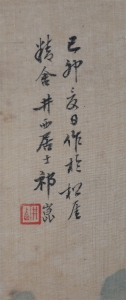 己卯夏日作於松崖
精舍井西居士祁崑